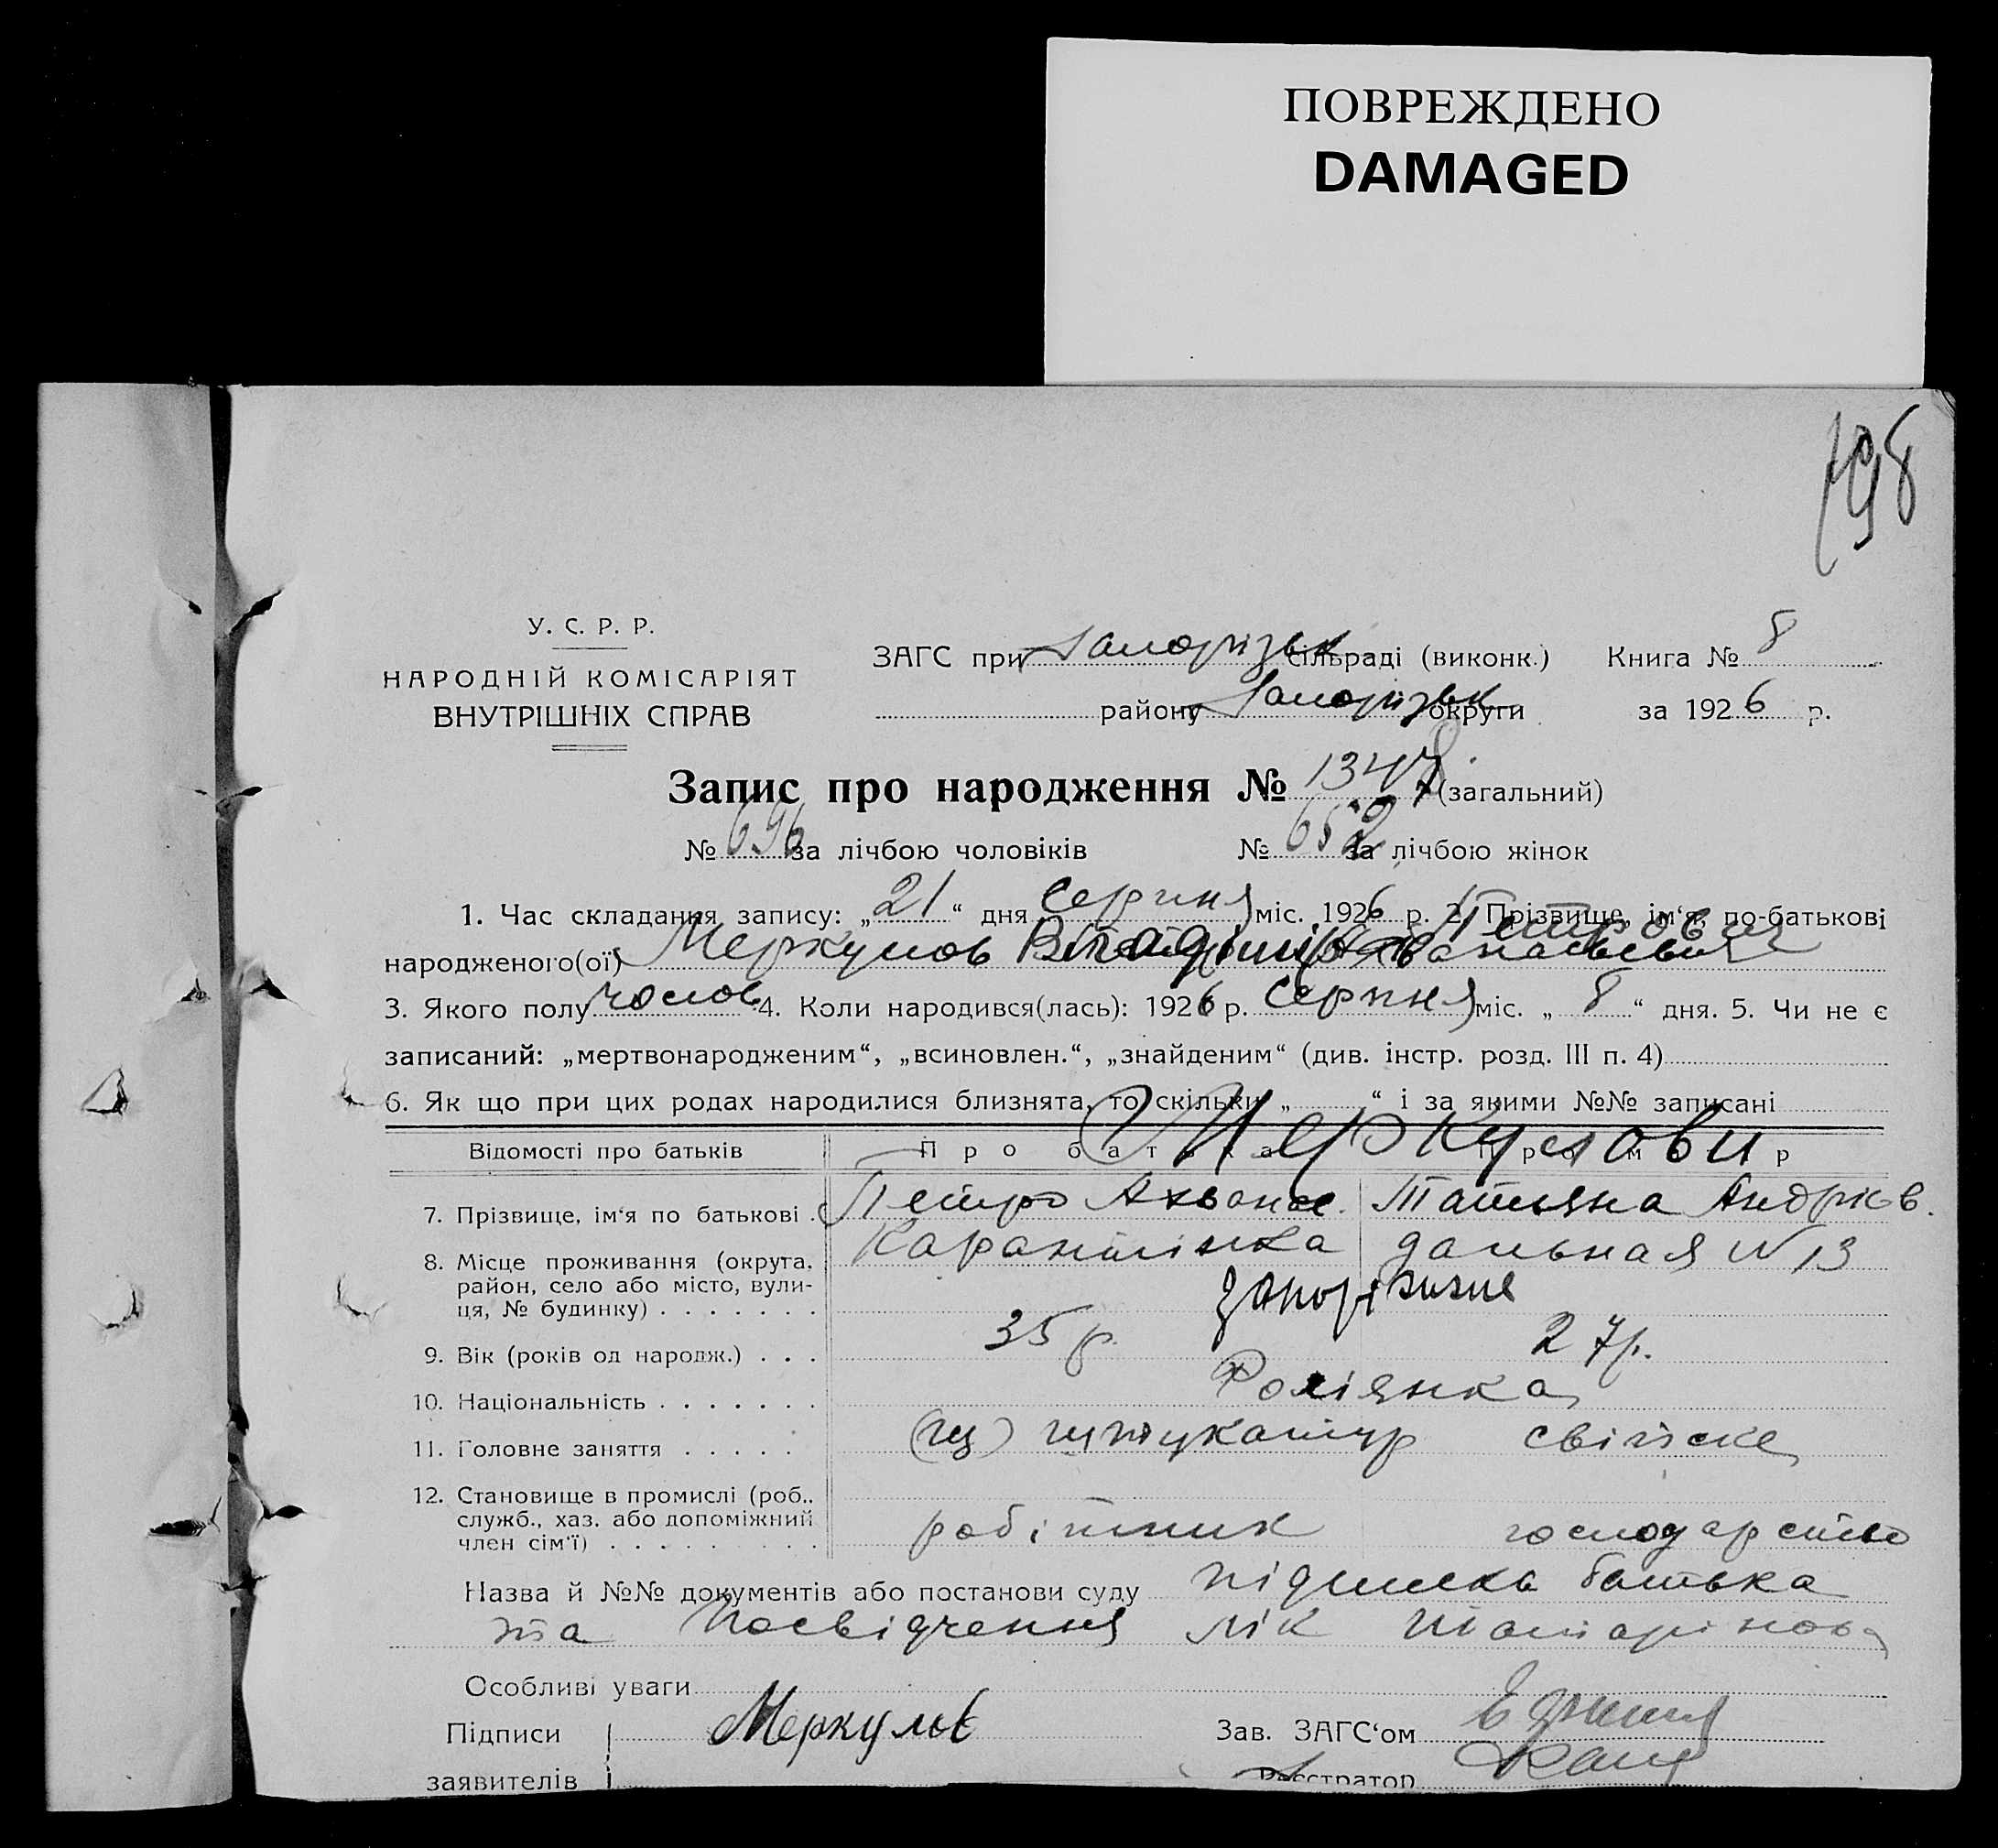 ПОВРЕЖДЕНО
DAMAGED
198
У. С. Р. Р.
НАРОДНІЙ КОМІСАРІЯТ
ВНУТРІШНІХ СПРАВ
ЗАГС при Запорізьк сільраді (виконк.) Книга № 8
району Запорізьк округи за 1926 р.
Запис про народження № 1348 (загальний)
№ 696 за лічбою чоловіків № 652 за лічбою жінок
1. Час складання запису: „21“ дня серпня міс. 1926 р. 2. Прізвище, ім‘я, по-батькові
народженого(ої) Меркулов Владімір Петрович
3. Якого полу чолов 4. Коли народився(лась): 1926 р. серпня міс. „8“ дня. 5. Чи не є
записаний: „мертвонародженим“, „всиновлен.“, „знайденим“ (див. інстр. розд. III п. 4)
6. Як що при цих родах народилися близнята, то скільки „ “ і за якими №№ записані
Відомості про батьків Про батька Про матір
Меркулови
7. Прізвище, ім‘я по батькові Петро Афанас. Татьяна Андріїв.
8. Місце проживання (округа, район, село або місто, вулиця, № будинку) Карантінка дальная № 13
Запоріжжє
9. Вік (років од народж.) 35 р. 27 р.
10. Національність Росіянка
11. Головне заняття штукатур свійске
12. Становище в промислі (роб., служб., хаз. або допоміжний член сім‘ї) робітник господарство
Назва й №№ документів або постанови суду підписка батька
та посвідчення лік Татарінова
Особливі уваги
Підписи Меркулов Зав. ЗАГС‘ом
заявителів Реєстратор